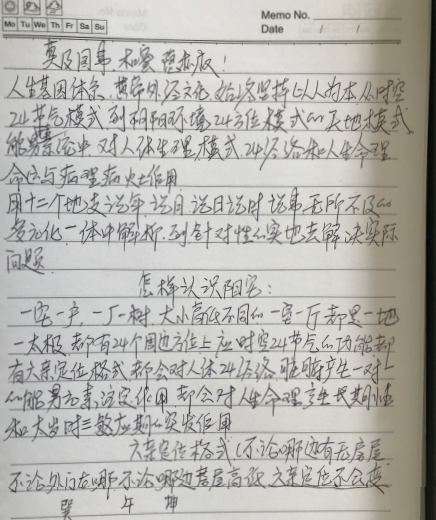 Memo No.
Mo Tu We Th Fr Sa Su
Date / /
人生基因体系,黄帝外经文化,始终坚持以人为本从时空
24节气模式到阴阳环境24方位模式的实地模式
能易系统中,对人体生理模式24经络和人生命理
命位与病理病灶作用
用十二个地支说年说月说日说时说事无所不及的
多元化一体中解析,到针对性的实地去解决实际
问题
怎样认识阳宅:
一宅一户,一厂一树,大小高低不同的一室一厅都是一地
一太极,都有24个周边方位上应时空24节气的功能都
有六亲定位格式都会对人体24经络脏腑产生一对一
的能易元素设定作用,都会对人生命理产生长期性
和大岁时三数应期的突发作用
六亲定位格式(不论哪边有无房屋
不论外门在哪,不论哪边房屋高低,六亲定位不会变
巽 午 坤